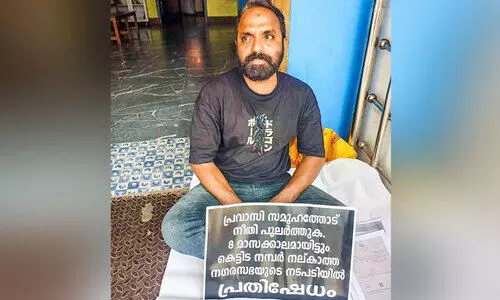 ドラゴン
ボール
പ്രവാസി സമൂഹത്തോട്
നീതി പുലർത്തുക.
8 മാസക്കാലമായിട്ടും
കെട്ടിട നമ്പർ നല്കാത്ത
നഗരസഭയുടെ നടപടിയിൽ
പ്രതിഷേധം